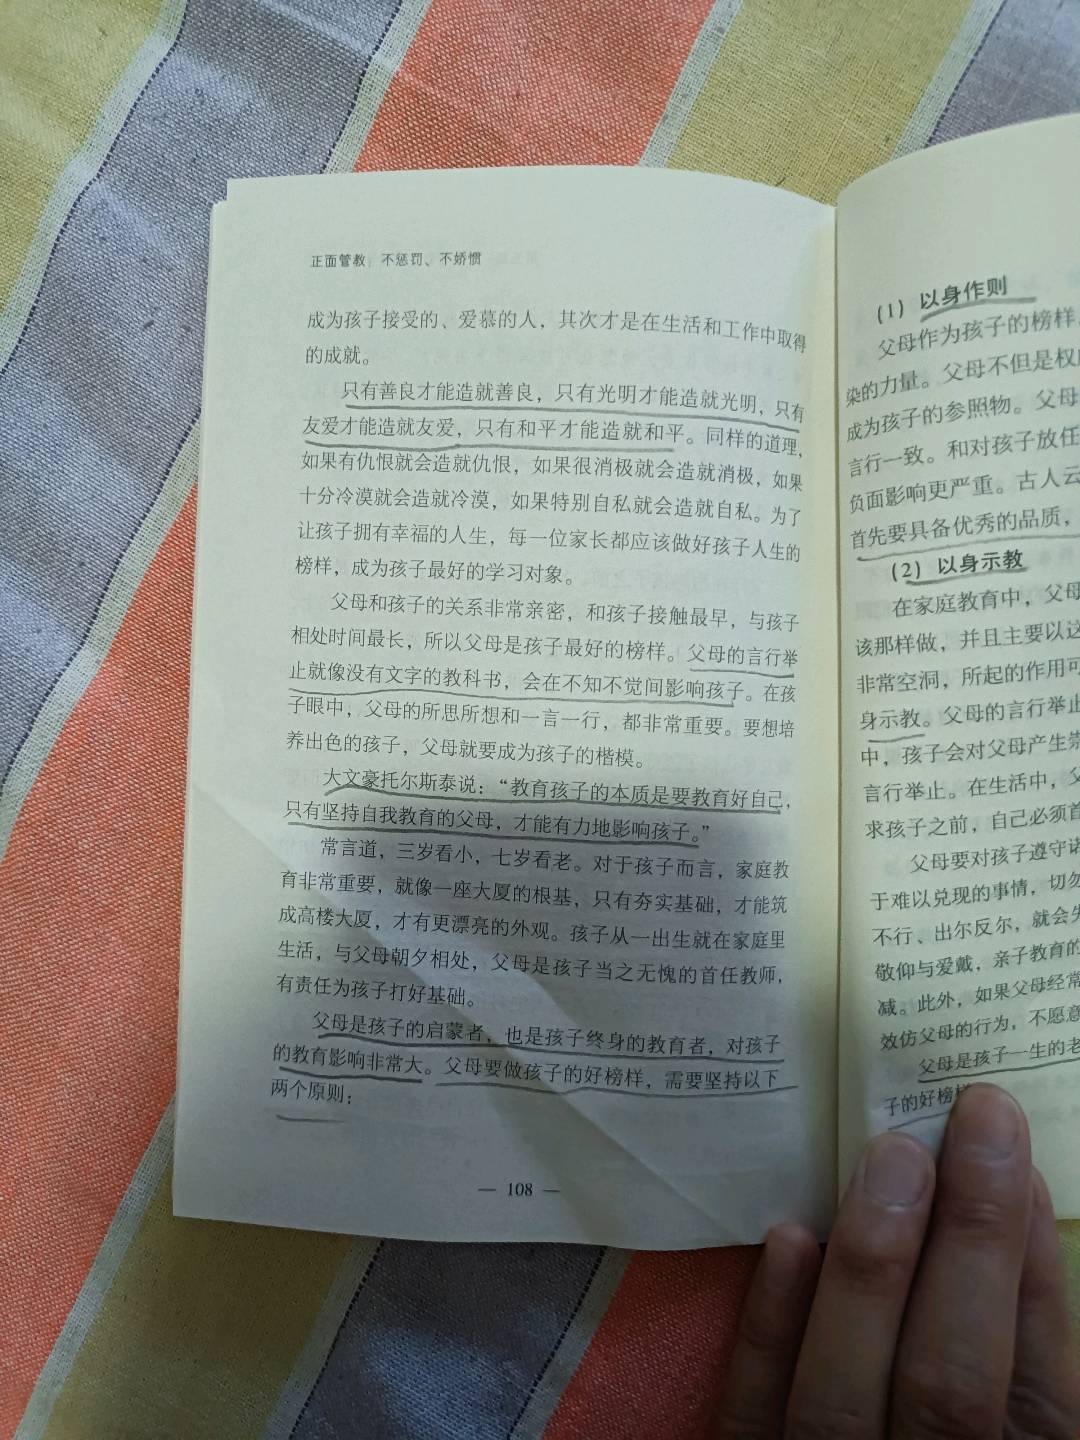 正面管教：不惩罚、不娇惯
成为孩子接受的、爱慕的人，其次才是在生活和工作中取得
的成就。
只有善良才能造就善良，只有光明才能造就光明，只有
友爱才能造就友爱，只有和平才能造就和平。同样的道理，
如果有仇恨就会造就仇恨，如果很消极就会造就消极，如果
十分冷漠就会造就冷漠，如果特别自私就会造就自私。为了
让孩子拥有幸福的人生，每一位家长都应该做好孩子人生的
榜样，成为孩子最好的学习对象。
父母和孩子的关系非常亲密，和孩子接触最早，与孩子
相处时间最长，所以父母是孩子最好的榜样。父母的言行举
止就像没有文字的教科书，会在不知不觉间影响孩子。在孩
子眼中，父母的所思所想和一言一行，都非常重要。要想培
养出色的孩子，父母就要成为孩子的楷模。
大文豪托尔斯泰说：“教育孩子的本质是要教育好自己，
只有坚持自我教育的父母，才能有力地影响孩子。”
常言道，三岁看小，七岁看老。对于孩子而言，家庭教
育非常重要，就像一座大厦的根基，只有夯实基础，才能筑
成高楼大厦，才有更漂亮的外观。孩子从一出生就在家庭里
生活，与父母朝夕相处，父母是孩子当之无愧的首任教师，
有责任为孩子打好基础。
父母是孩子的启蒙者，也是孩子终身的教育者，对孩子
的教育影响非常大。父母要做孩子的好榜样，需要坚持以下
两个原则：
— 108 —
（1）以身作则
父母作为孩子的榜样，
染的力量。父母不但是权
成为孩子的参照物。父母
言行一致。和对孩子放任
负面影响更严重。古人云
首先要具备优秀的品质，
（2）以身示教
在家庭教育中，父母
该那样做，并且主要以这
非常空洞，所起的作用可
身示教。父母的言行举止
中，孩子会对父母产生崇
言行举止。在生活中，父
求孩子之前，自己必须首
父母要对孩子遵守诺
于难以兑现的事情，切勿
不行、出尔反尔，就会失
敬仰与爱戴，亲子教育的
减。此外，如果父母经常
效仿父母的行为，不愿意
父母是孩子一生的老
子的好榜样